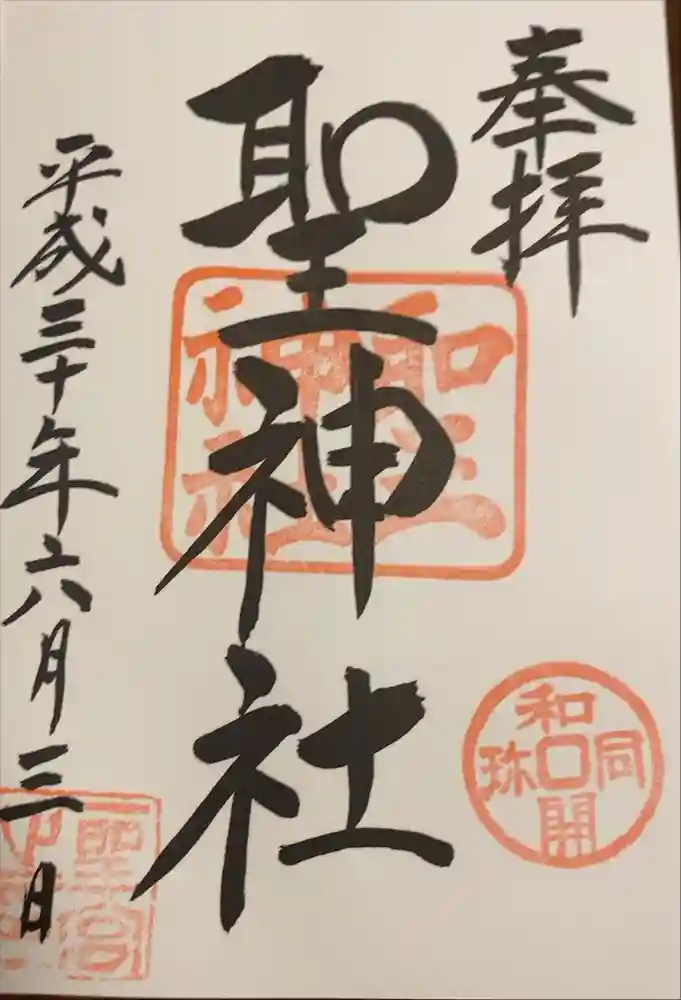 奉拝
聖神社
平成三十年六月三日
聖神社
和同開珎